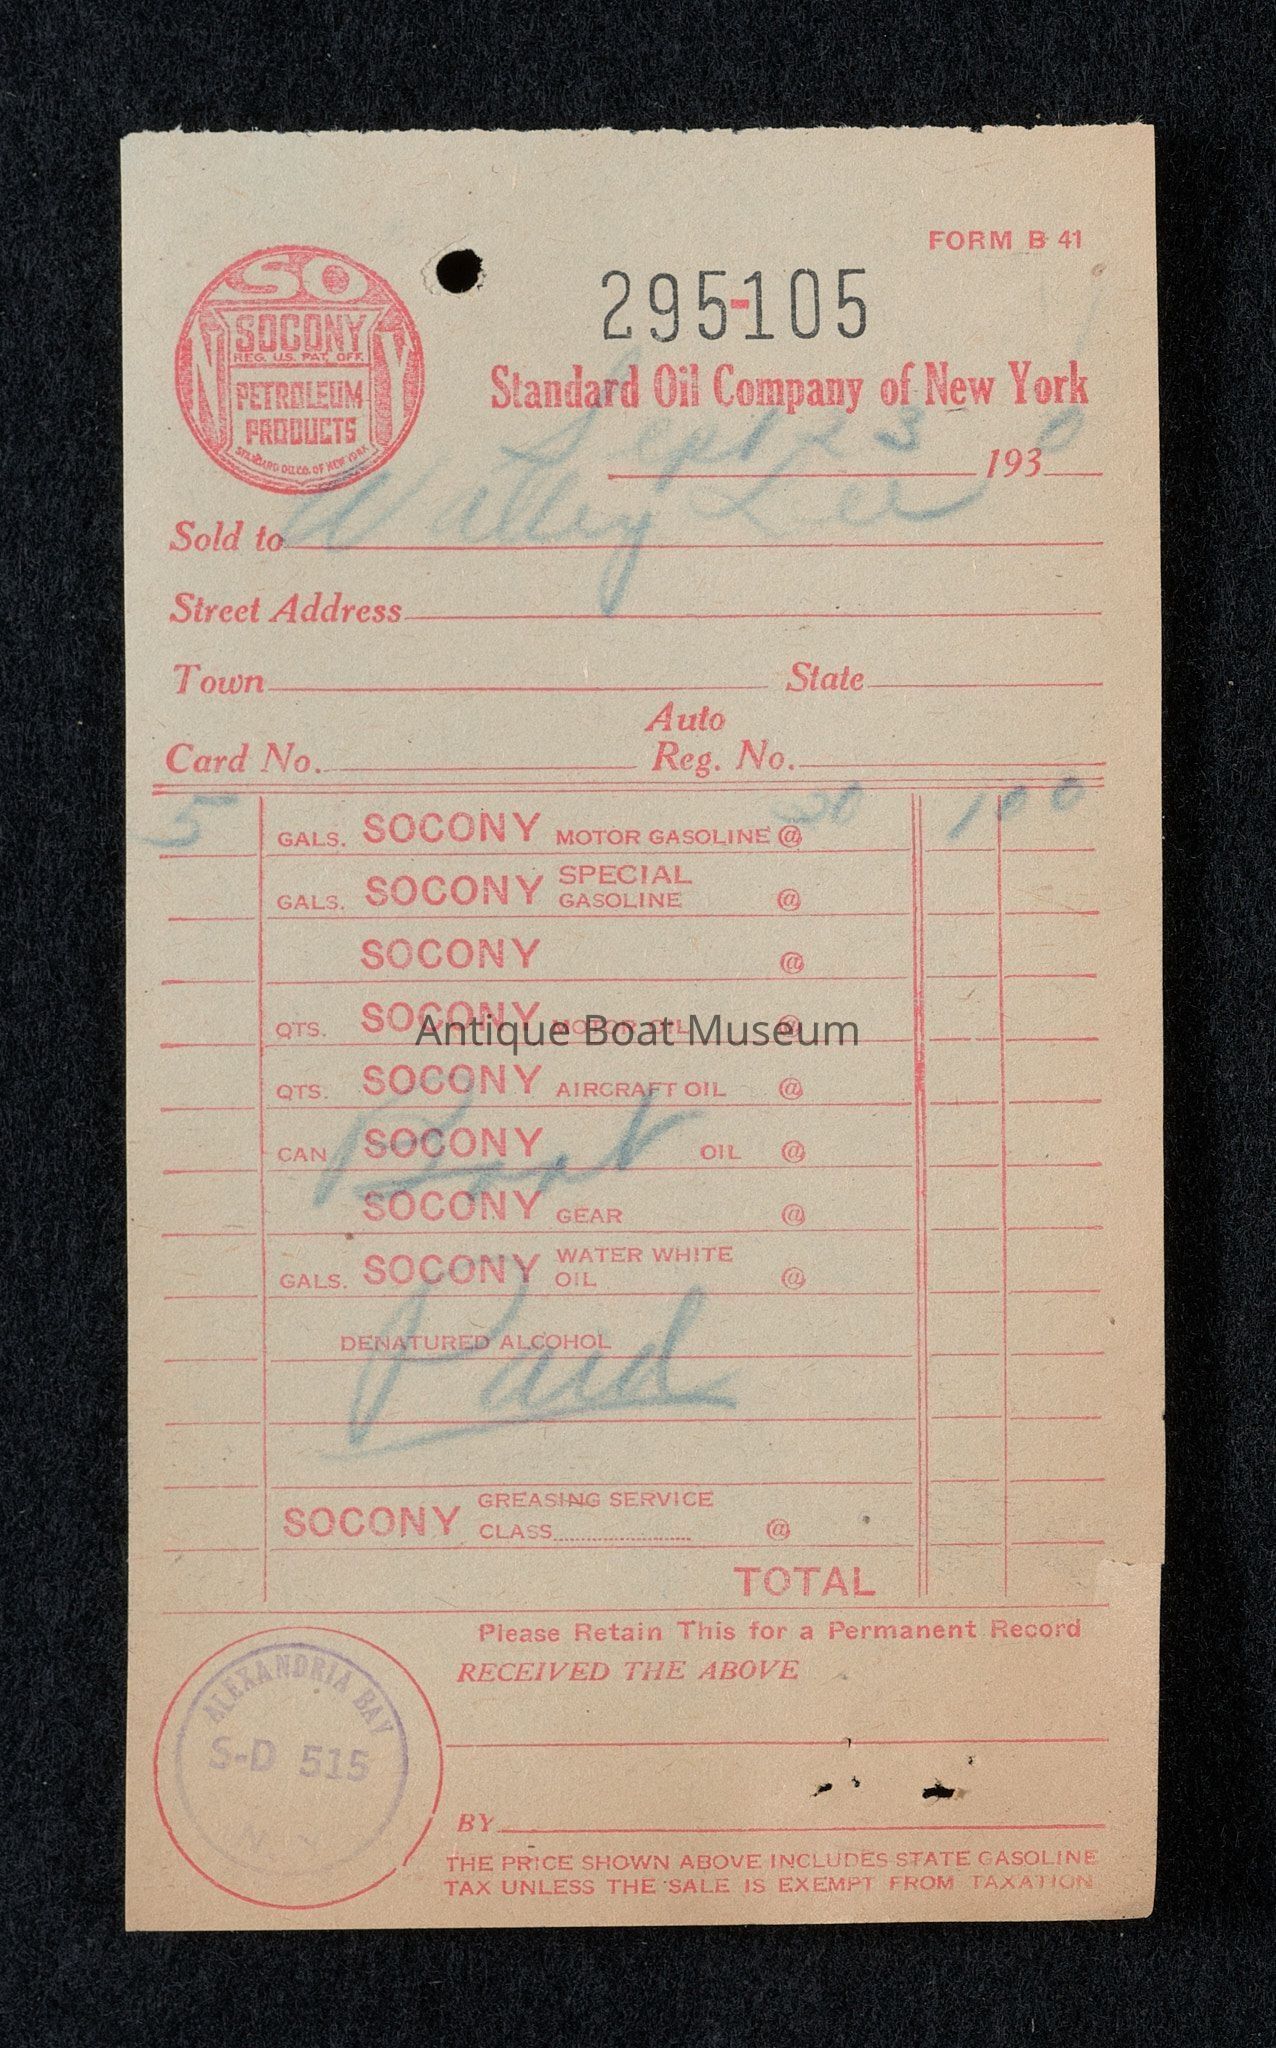 FORM B 41
SO
NY
SOCONY
REG. U.S. PAT. OFF.
PETROLEUM
PRODUCTS
STANDARD OIL CO. OF NEW YORK
295-105
Standard Oil Company of New York
Sept 23 1930
Sold to Walley Lee
Street Address
Town State
Auto
Card No. Reg. No.
5 GALS. SOCONY MOTOR GASOLINE @ 20 1 00
GALS. SOCONY SPECIAL GASOLINE @
SOCONY @
QTS. SOCONY MOTOR OIL @
Antique Boat Museum
QTS. SOCONY AIRCRAFT OIL @
CAN SOCONY OIL @
Boat
SOCONY GEAR @
GALS. SOCONY WATER WHITE OIL @
DENATURED ALCOHOL
Paid
SOCONY GREASING SERVICE
CLASS @
TOTAL
Please Retain This for a Permanent Record
RECEIVED THE ABOVE
ALEXANDRIA BAY
S-D 515
N. Y.
BY
THE PRICE SHOWN ABOVE INCLUDES STATE GASOLINE
TAX UNLESS THE SALE IS EXEMPT FROM TAXATION